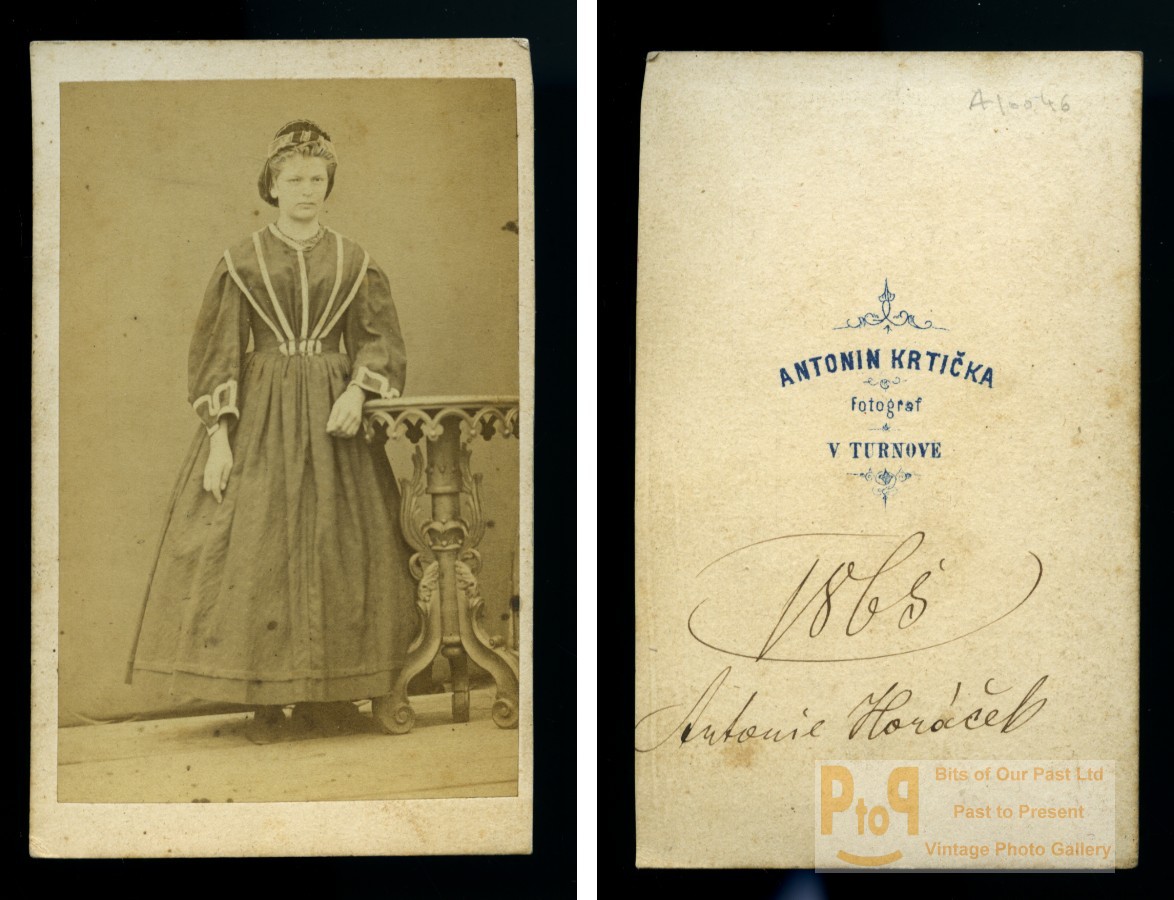 A10046
ANTONIN KRTIČKA
fotograf
V TURNOVE
1865
Antonie Horáček
PtoP
Bits of Our Past Ltd
Past to Present
Vintage Photo Gallery